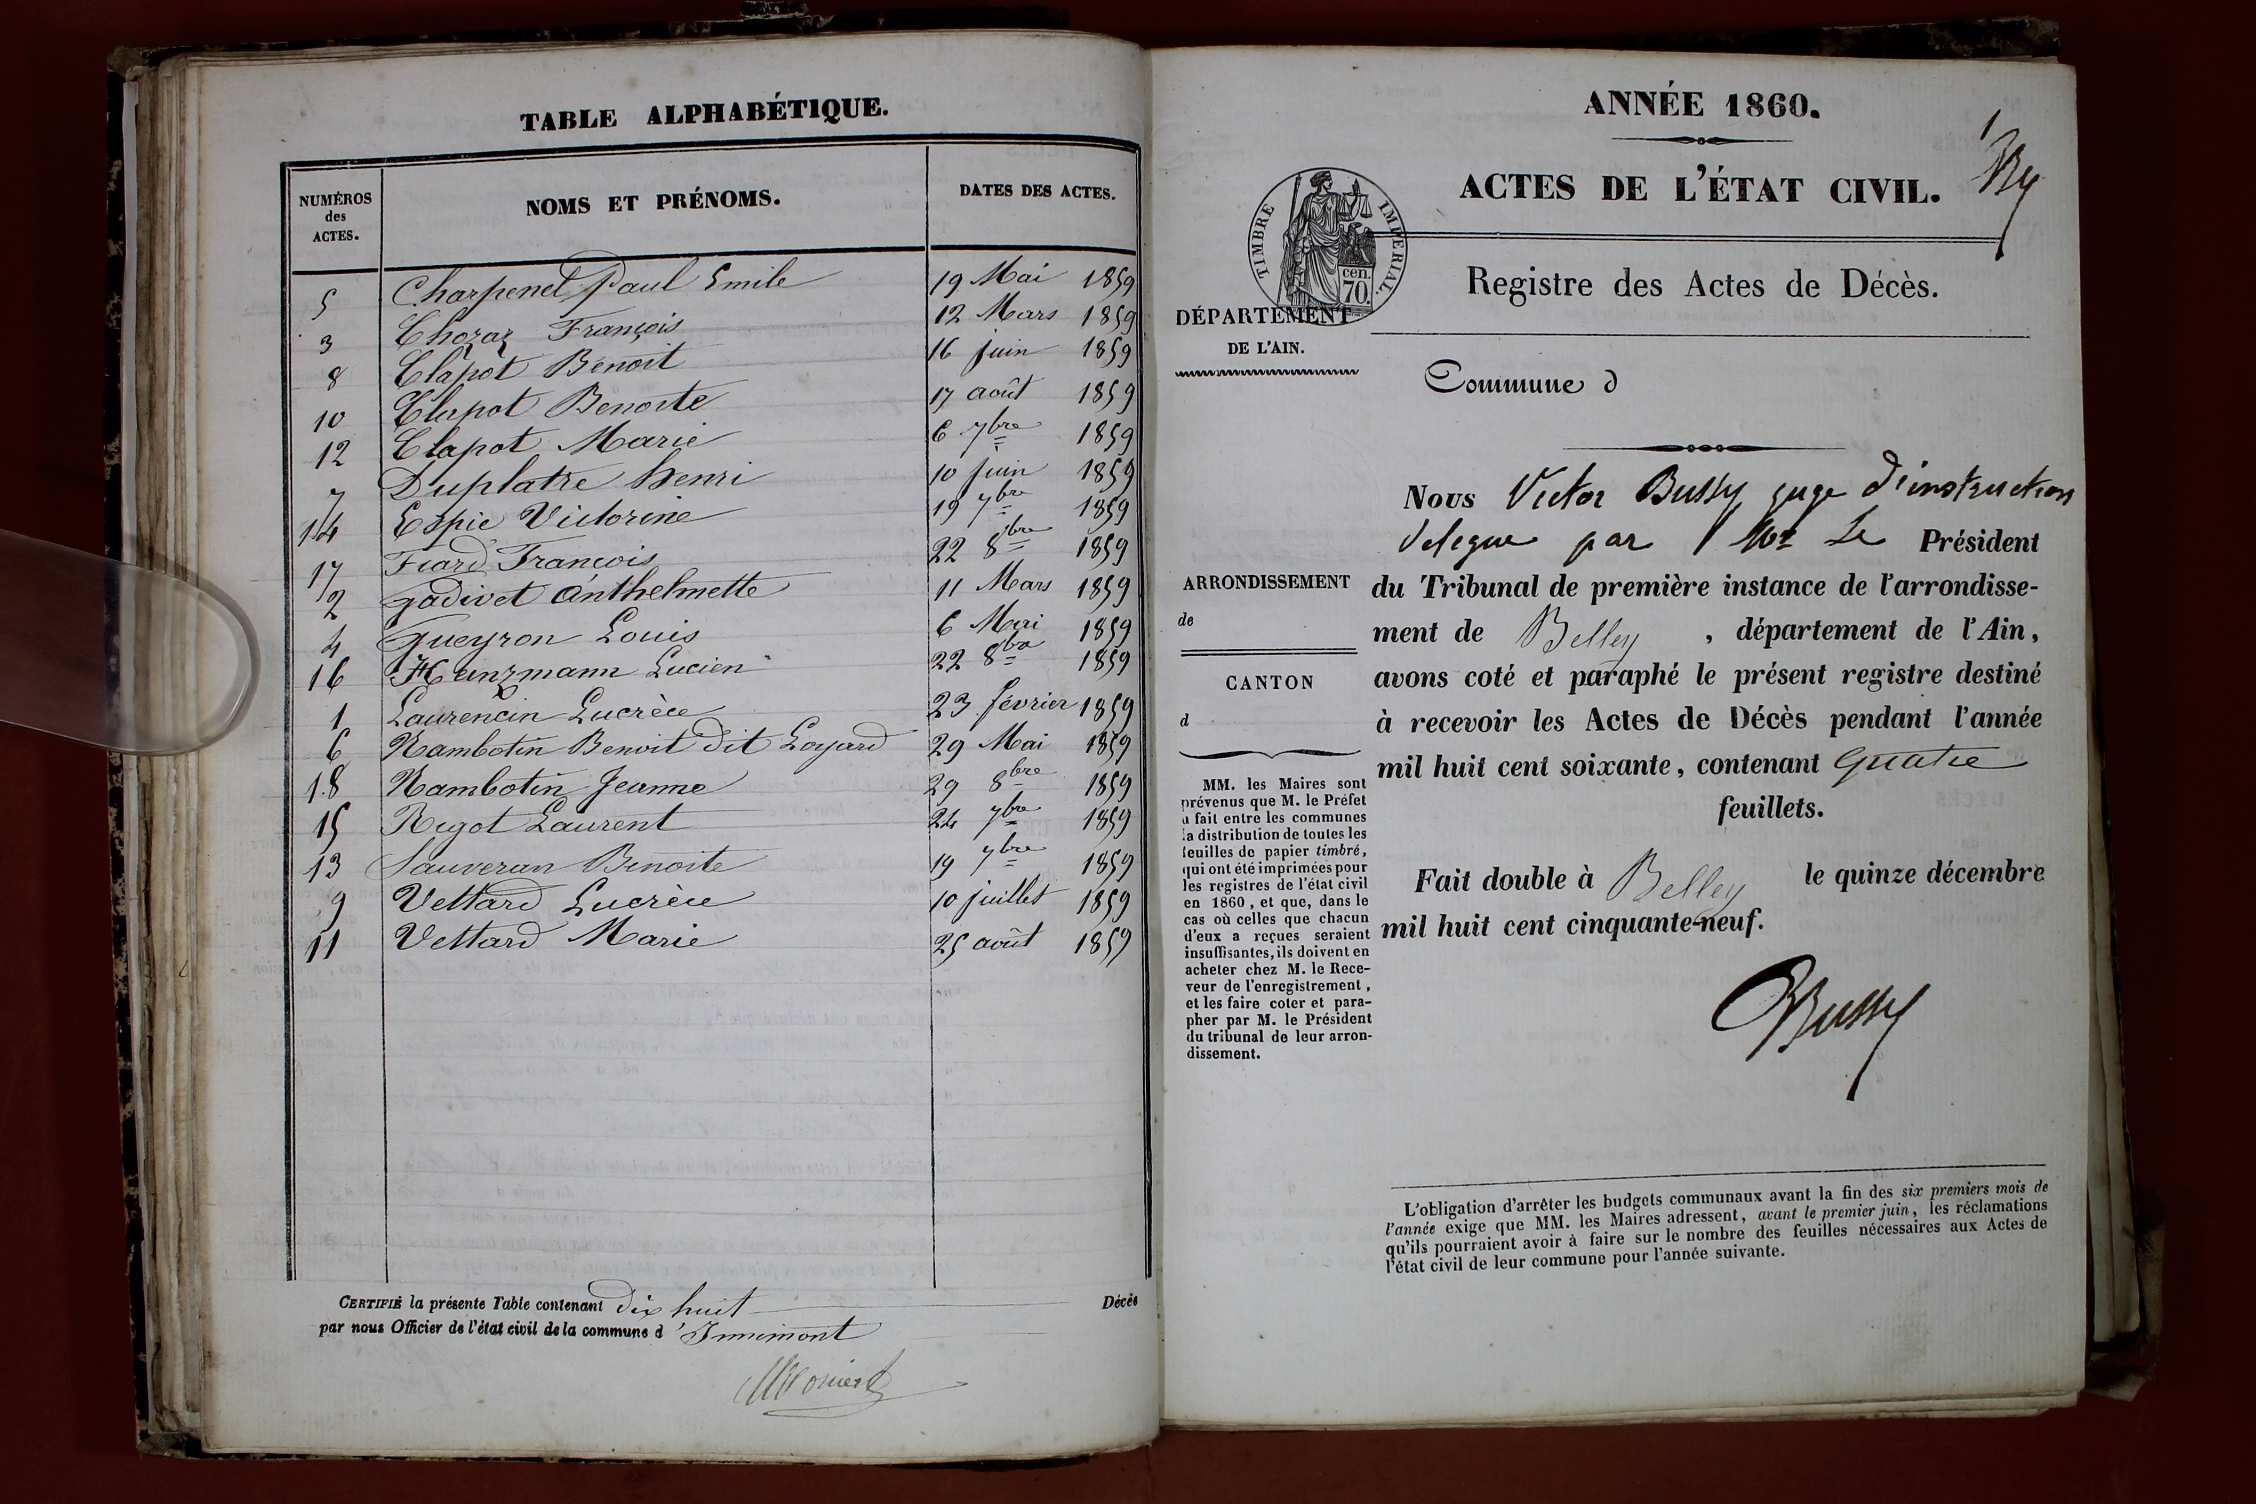 TABLE ALPHABÉTIQUE.
NUMÉROS des ACTES. NOMS ET PRÉNOMS. DATES DES ACTES.
5 Charpenel Paul Emile 19 Mai 1859
3 Chozaz François 12 Mars 1859
8 Clapot Benoit 16 juin 1859
10 Clapot Benoite 17 août 1859
12 Clapot Marie 6 7bre 1859
7 Duplatre henri 10 juin 1859
14 Espic Victorine 19 7bre 1859
17 Fiard François 22 8bre 1859
2 gadivet Anthelmette 11 Mars 1859
4 Gueyron Louis 6 Mai 1859
16 Hunzmann Lucien 22 8bre 1859
1 Laurencin Lucrèce 23 février 1859
6 Rambotin Benoit dit Loyard 29 Mai 1859
18 Rambotin Jeanne 29 8bre 1859
15 Rigot Laurent 24 7bre 1859
13 Sauveran Benoite 19 7bre 1859
9 Vettard Lucrèce 10 juillet 1859
11 Vettard Marie 25 août 1859
CERTIFIÉ la présente Table contenant dix huit Décès
par nous Officier de l'état civil de la commune d'Innimont
ANNÉE 1860.
1
ACTES DE L'ÉTAT CIVIL.
TIMBRE IMPERIAL.
cen.
70.
Registre des Actes de Décès.
DÉPARTEMENT
DE L'AIN.
Commune d
ARRONDISSEMENT
de
CANTON
d
MM. les Maires sont
prévenus que M. le Préfet
a fait entre les communes
la distribution de toutes les
feuilles de papier timbré,
qui ont été imprimées pour
les registres de l'état civil
en 1860, et que, dans le
cas où celles que chacun
d'eux a reçues seraient
insuffisantes, ils doivent en
acheter chez M. le Rece-
veur de l'enregistrement,
et les faire coter et para-
pher par M. le Président
du tribunal de leur arron-
dissement.
Nous Victor Bussy juge d'instruction
delegue par Mr Le Président
du Tribunal de première instance de l'arrondisse-
ment de Belley, département de l'Ain,
avons coté et paraphé le présent registre destiné
à recevoir les Actes de Décès pendant l'année
mil huit cent soixante, contenant quatre
feuillets.
Fait double à Belley le quinze décembre
mil huit cent cinquante-neuf.
Bussy
L'obligation d'arrêter les budgets communaux avant la fin des six premiers mois de
l'année exige que MM. les Maires adressent, avant le premier juin, les réclamations
qu'ils pourraient avoir à faire sur le nombre des feuilles nécessaires aux Actes de
l'état civil de leur commune pour l'année suivante.